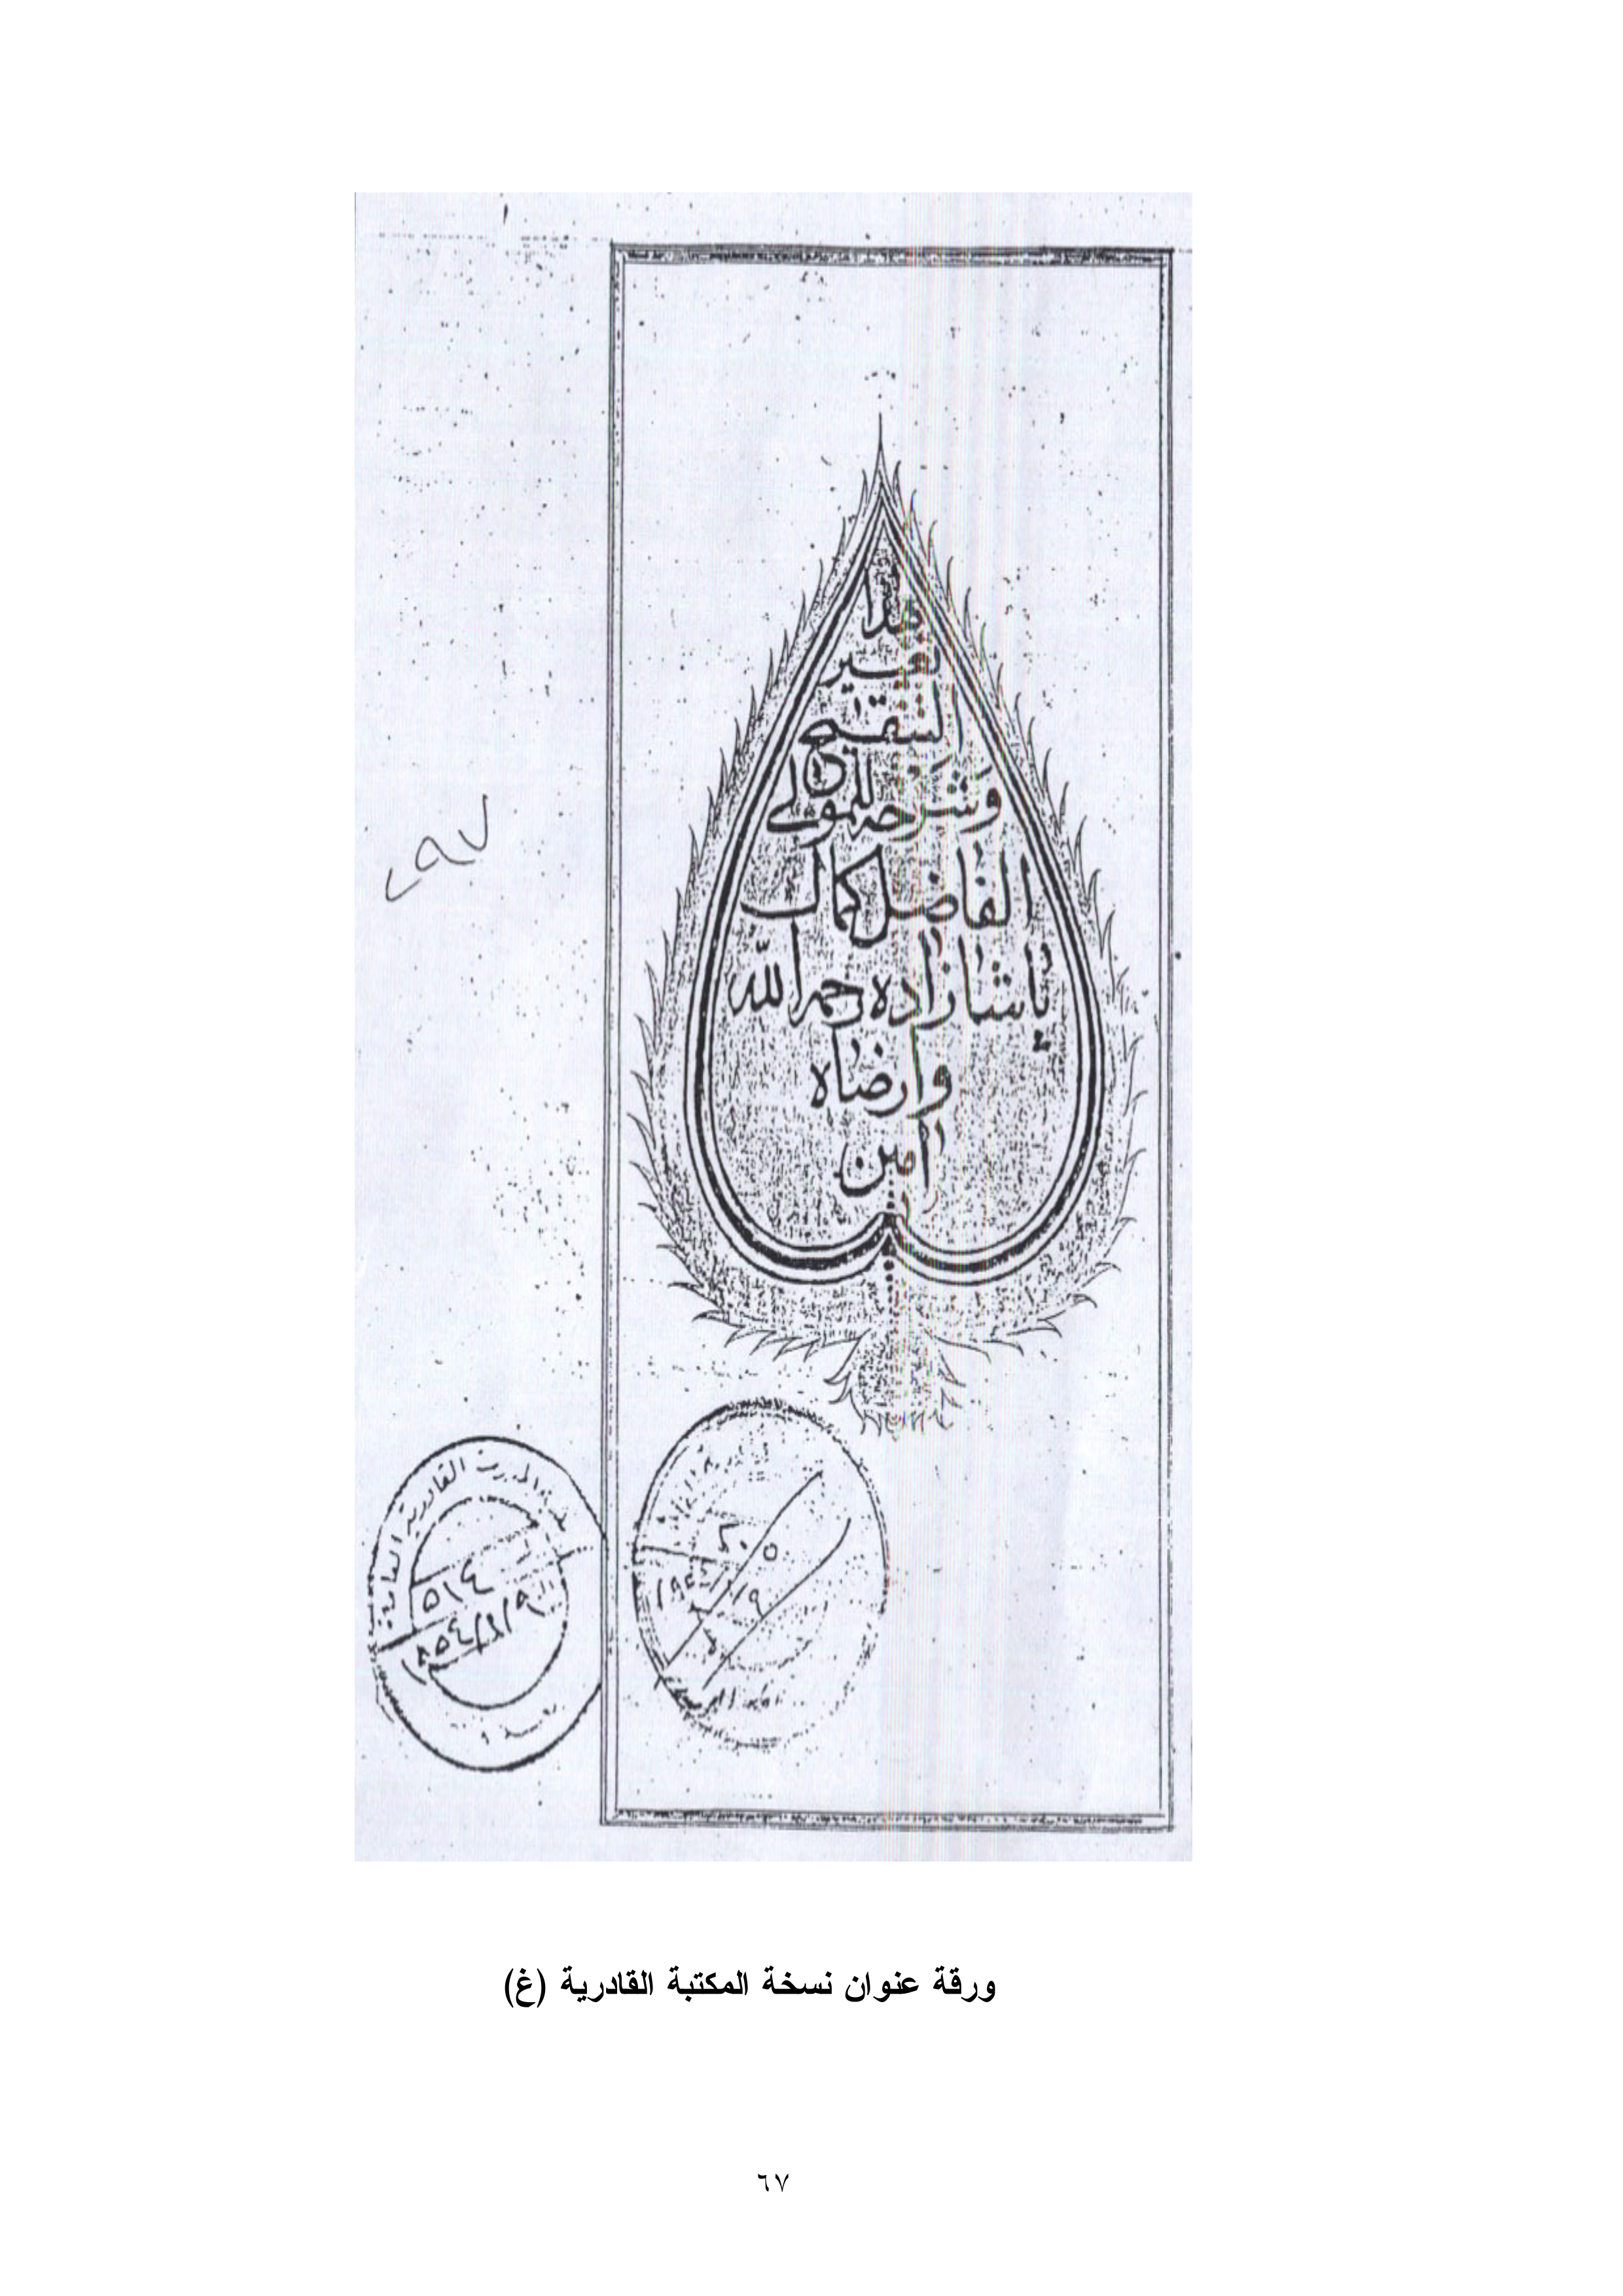 هذا
تغيير
التنقيح
وَشَرْحه للمولى
الفاضل كمال
پاشازاده رحمه الله
وارضاه
امين
القادرية العامة
٥١٤
٢٠٥
ورقة عنوان نسخة المكتبة القادرية (غ)
٦٧